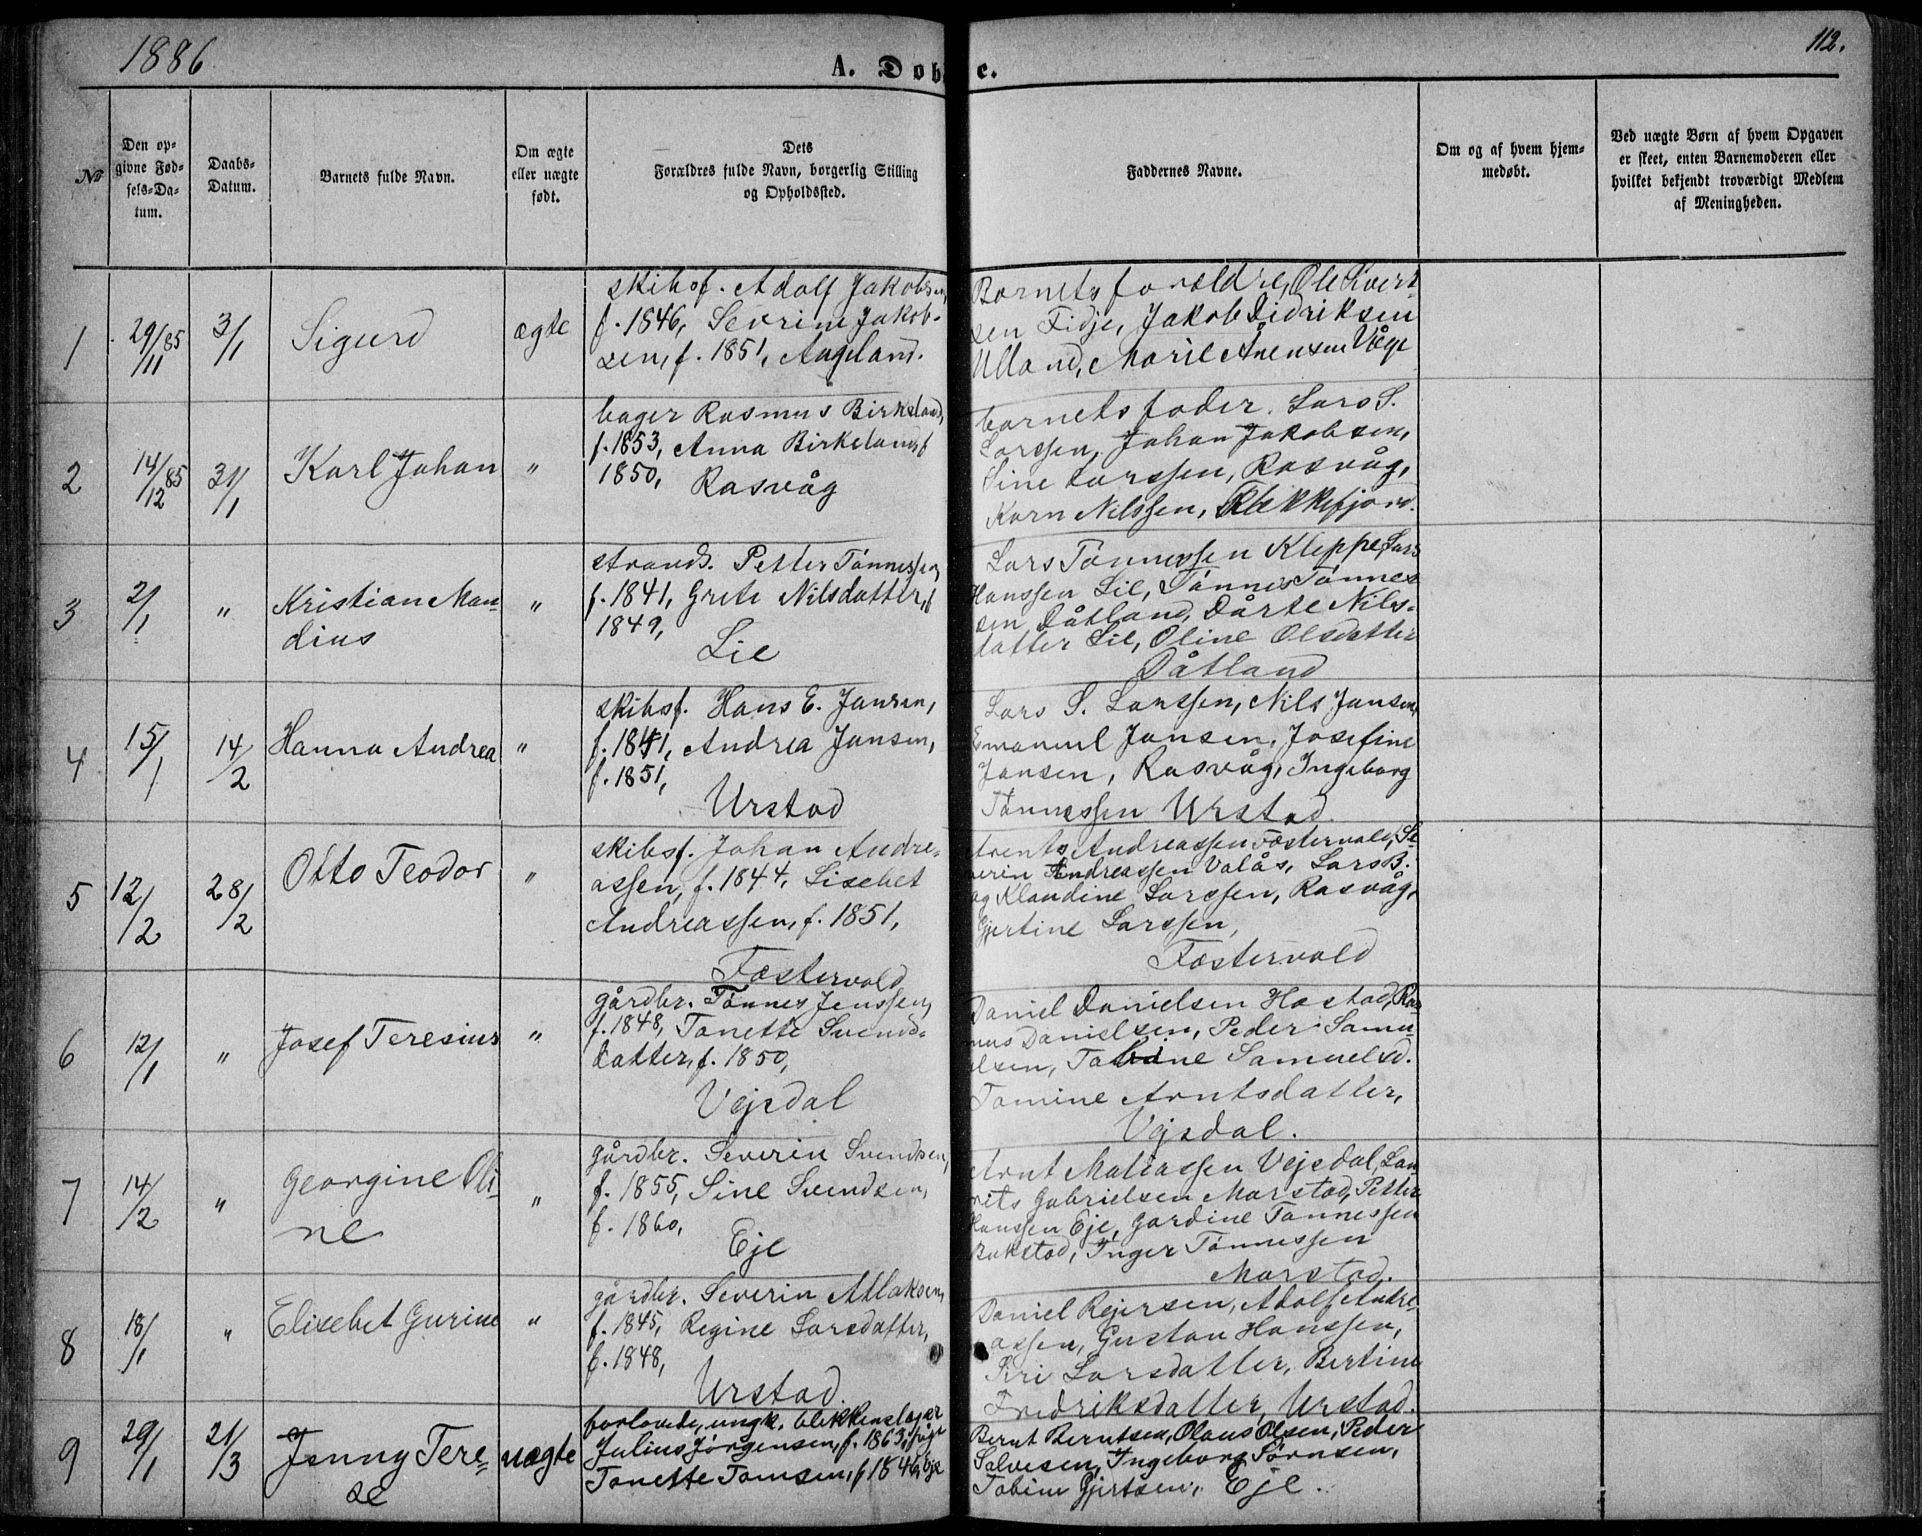 1886
112.
A. Døbte.
№
Den op-
givne Fød-
sels-Da-
tum.
Daabs-
Datum.
Barnets fulde Navn.
Om ægte
eller uægte
født.
Dets
Forældres fulde Navn, borgerlig Stilling
og Opholdssted.
Faddernes Navne.
Om og af hvem hjem-
medøbt.
Ved uægte Børn af hvem Opgaven
er skeet, enten Barnemoderen eller
hvilket bekjendt troværdigt Medlem
af Menigheden.
1
29/11 85
3/1
Sigurd
ægte
skibsf. Adolf Jakobsen,
f. 1846, Sevrine Jakob-
sen, f. 1851, Angeland.
Barnets forældre, Ole
sen Fidje, Jakob Didriksen
Ulland, Marie Ånensen Våge
2
14/12 85
31/1
Karl Johan
"
bager Rasmus Birkeland,
f. 1853, Anna Birkeland, f
1850,
Rasvåg
barnets fader, Lars S.
Larssen, Johan Jakobsen,
Sine Larssen, Rasvåg,
Karn Nilssen, Flekkefjord.
3
2/1
"
Kristian Man-
dius
"
strands. Petter Tønnessen
f. 1841, Grete Nilsdatter, f
1849,
Lie
Lars Tønnessen Kleppe, Lars
Hanssen Lie, Tønnes Tønnes-
sen Dåtland, Dårte Nils-
datter Lie, Oline Olsdatter
Dåtland
4
15/1
14/2
Hanna Andrea
"
skibsf. Hans E. Jansen,
f. 1841, Andrea Jansen,
f. 1851,
Urstad
Lars S. Larssen, Nils Jansen,
Emanuel Jansen, Josefine
Jansen, Rasvåg, Ingeborg
Tønnessen Urstad.
5
12/2
28/2
Otto Teodor
"
skibsf. Johan Andre-
assen, f. 1844, Lisebet
Andreassen, f. 1851,
Fæstervold
Arent Andreassen Fæstervold, Se-
verin Andreassen Valås, Lars B.
og Klaudine Larssen, Rasvåg,
Gjertine Larssen,
Fæstervold
6
12/1
"
Josef Teresius
"
gårdbr. Tønnes Jenssen,
f. 1848, Tonette Svends-
datter, f. 1850,
Vejsdal
Daniel Danielsen Hastad, Ras-
mus Danielsen, Peder Samu-
elsen, Samuelsd.
Tomine Arntsdatter,
Vejsdal.
7
14/2
"
Georgine Oli-
ne
"
gårdbr. Severin Svendsen,
f. 1855, Sine Svendsen,
f. 1860,
Eje
Arnt Matiassen Vejsdal, Lau-
rits Gabrielsen Marstad, Petter
Hanssen Eje, Gardine Tønnessen
Bakstad, Inger Tønnessen
Marstad.
8
18/1
"
Elisebet Gurine
"
gårdbr. Severin Atlaksen,
f. 1845, Regine Larsdatter,
f. 1848,
Urstad.
Daniel Rejersen, Adolf Andre-
assen, Gustav Hanssen,
Siri Larsdatter, Bertine
Fredriksdatter, Urstad.
9
29/1
21/3
Jenny Tere-
se
uægte
forlovede, ungk. blikkenslager
Julius Jørgensen, f. 1863, pige
Tonette Tomsen, f 1846, Eje
Bernt Berntsen, Olaus Olsen, Peder
Salvesen, Ingeborg Sørnsen,
Tobine Gjertsen, Eje.